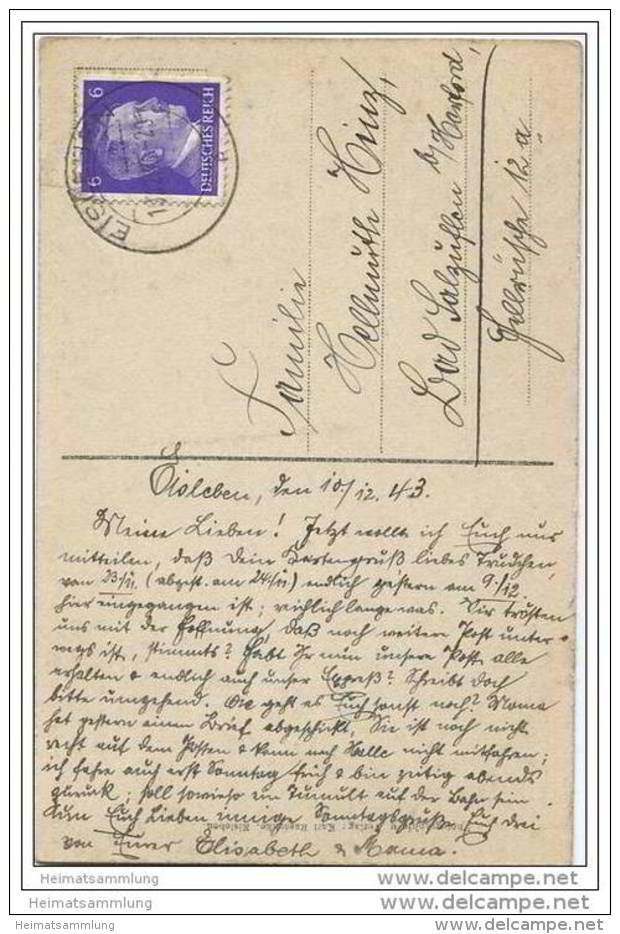 6
6
DEUTSCHES REICH
EISLEBEN
Familie
Hellmuth Hinz,
Bad Salzuflen b/Herford,
12 a
Eisleben, den 10/12. 43.
Meine Lieben! Jetzt wollte ich Euch nur
mitteilen, daß Dein Kartengruß liebes Trudchen,
vom 23/11. (abgest. am 24/11) endlich gestern am 9./12.
hier eingegangen ist; reichlich lange was. Wir trösten
uns mit der Hoffnung, daß noch weitere Post unter-
wegs ist, stimmts? Habt Ihr nun unsere Post alle
erhalten & endlich auch unser Expreß? Schreibt doch
bitte umgehend. Wie geht es Euch sonst noch? Mama
hat gestern einen Brief abgeschickt. Sie ist noch nicht
recht auf dem Posten & kann nach Halle nicht mitfahren;
ich fahre auch erst Sonntag früh & bin zeitig abends
zurück; soll sowieso ein Tumult auf der Bahn sein.
Nun Euch Lieben innige Sonntagsgrüße Euch drei
von Eurer Elisabeth & Mama.
Verlag: Karl Eisleben
Heimatsammlung
Heimatsammlung
Heimatsammlung
www.delcampe.net
www.delcampe.net
www.delcampe.net